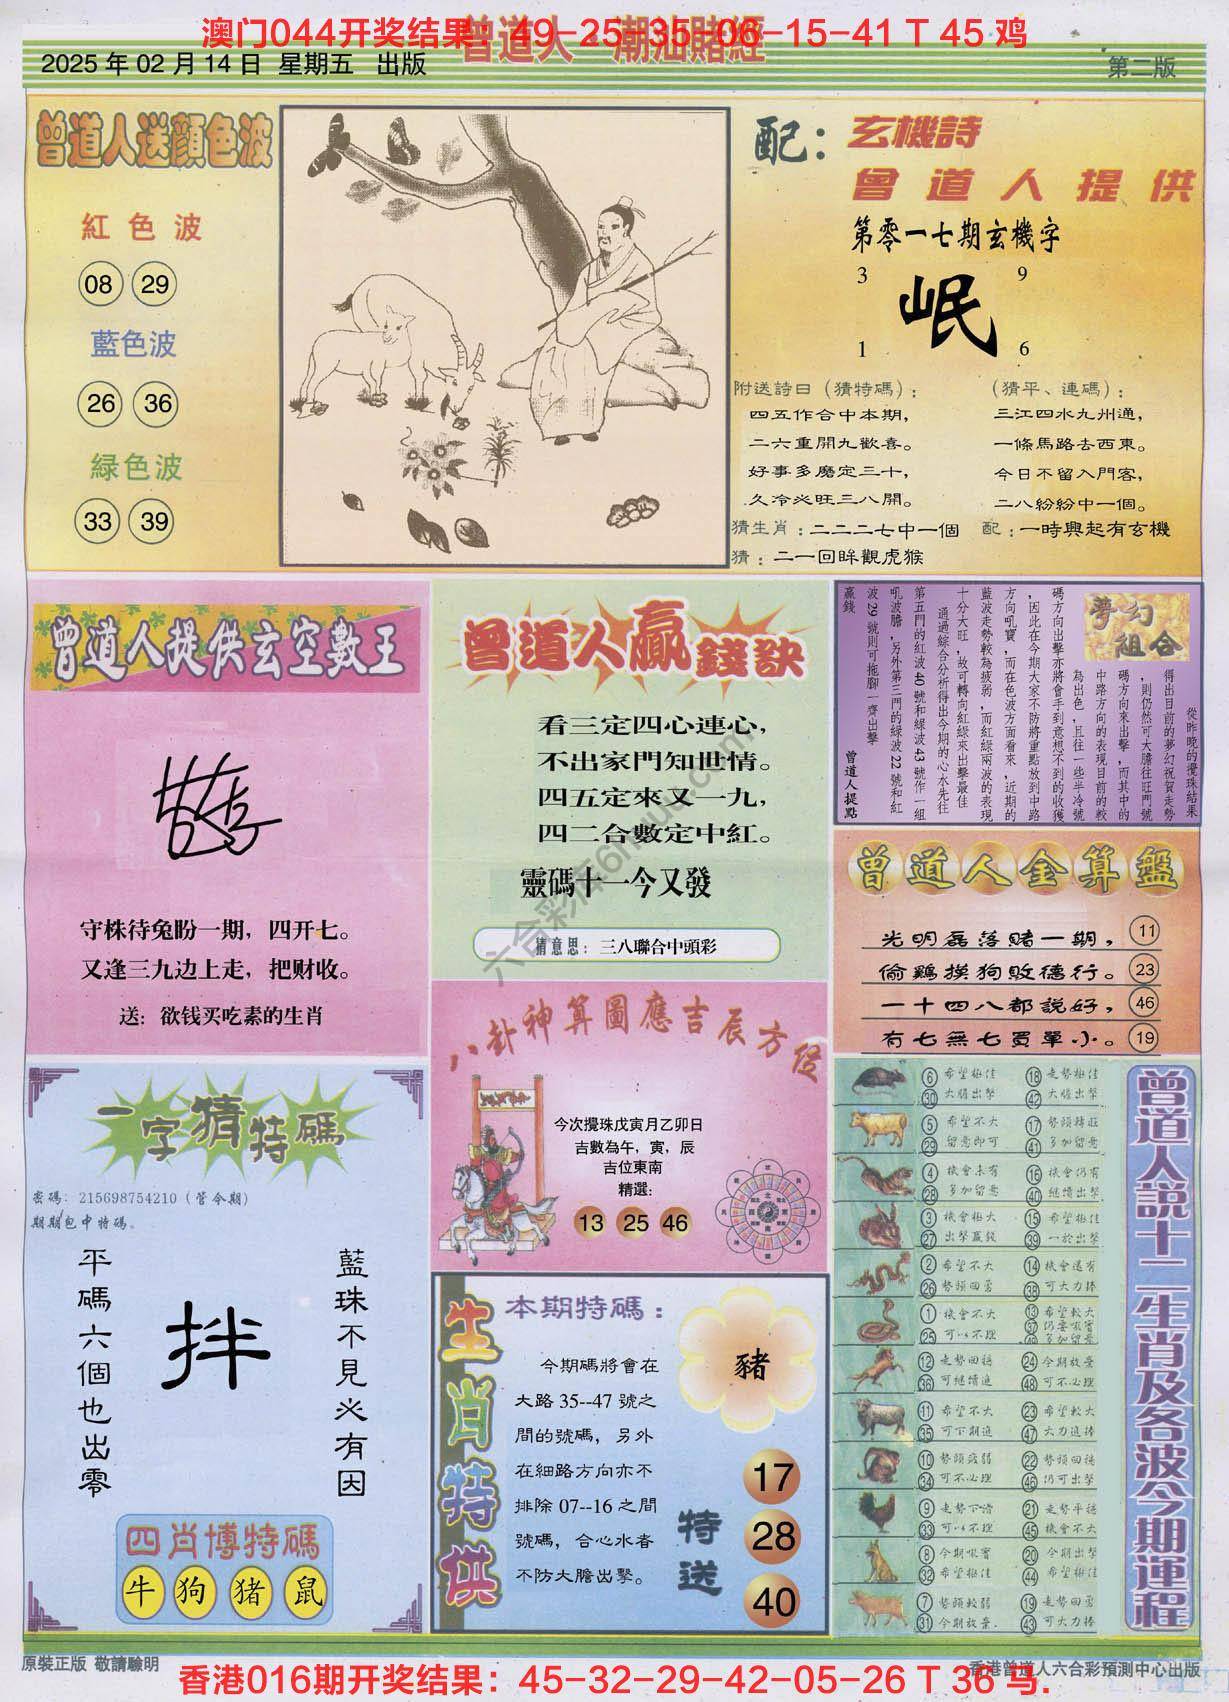 澳门044开奖结果：49-25-35-06-15-41 T 45 鸡
曾道人 潮汕賭經
2025 年 02 月 14 日 星期五 出版
第二版
曾道人送顏色波
紅色波
08 29
藍色波
26 36
緑色波
33 39
配：玄機詩
曾道人提供
第零一七期玄機字
3 9
岷
1 6
附送詩曰（猜特碼）：
四五作合中本期，
二六重開九歡喜。
好事多磨定三十，
久冷必旺三八開。
（猜平、連碼）：
三江四水九州通，
一條馬路去西東。
今日不留入門客，
二八紛紛中一個。
猜生肖：二二二七中一個 配：一時興起有玄機
猜：二一回眸觀虎猴
曾道人提供玄空數王
守株待兔盼一期，四开七。
又逢三九边上走，把财收。
送：欲钱买吃素的生肖
曾道人贏錢訣
看三定四心連心，
不出家門知世情。
四五定來又一九，
四二合數定中紅。
靈碼十一今又發
猜意思：三八聯合中頭彩
夢幻組合
從昨晚的攪珠結果
得出目前的夢幻祝賀走勢
，則仍然可大膽往旺門號
碼方向來出擊，而其中的
中路方向的表現目前的較
為出色，且往一些半冷號
碼方向出擊亦將會手到意想不到的收獲
，因此在今期大家不防將重點放到中路
方向吼寶，而在色波方面看來，近期的
藍波走勢較為疲弱，而紅緑兩波的表現
十分大旺，故可轉向紅緑來出擊最佳
通過綜合分析得出今期的心水先往
第五門的紅波 40 號和緑波 43 號作一組
吼波膽，另外第三門的緑波 22 號和紅
波 29 號則可拖腳一齊出擊
贏錢
曾道人提點
曾道人金算盤
光明磊落賭一期， 11
偷鷄摸狗敗德行。 23
一十四八都説好， 46
有七無七買單小。 19
八卦神算圖應吉辰方位
今次攪珠戊寅月乙卯日
吉數為午，寅，辰
吉位東南
精選：
13 25 46
一字猜特碼
密碼：215698754210（管今期）
期期包中特碼。
平碼六個也出零
拌
藍珠不見必有因
四肖博特碼
牛 狗 猪 鼠
生肖特供
本期特碼：
今期碼將會在
大路 35--47 號之
間的號碼，另外
在細路方向亦不
排除 07--16 之間
號碼，合心水者
不防大膽出擊。
豬
特送
17
28
40
曾道人説十二生肖及各波今期運程
6 希望極佳 18 走勢極佳
30 大膽出擊 42 大膽出擊
5 希望不大 17 勢頭轉旺
29 留意即可 41 多加留意
4 機會未有 16 機會仍有
28 多加留意 40 繼續出擊
3 機會極大 15 希望極佳
27 出擊贏錢 39 一於出擊
2 希望不大 14 機會還有
26 勢頭回勇 38 可大力捧
1 機會不大 13 希望較大
25 可以不理
12 走勢回穩 24 今期放棄
36 可繼續追 48 可不必理
11 希望不大 23 希望較大
35 可下期追 47 大力追捧
10 勢頭疲弱 22 勢頭回穩
34 可不必理 46 仍可出擊
9 走勢下滑 21 走勢平穩
33 可以不理 45 機會不大
8 今期吼寶 20 今期出擊
32 希望極佳 44 希望極佳
7 勢頭較弱 19 走勢回勇
31 今期放棄 43 可大力捧
原裝正版 敬請驗明
香港016期开奖结果：45-32-29-42-05-26 T 36 马.
香港曾道人六合彩預測中心出版